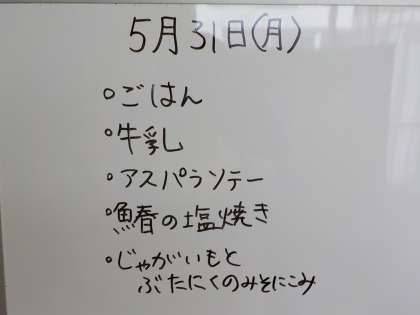 5月31日(月)
○ごはん
○牛乳
○アスパラソテー
○鰆の塩焼き
○じゃがいもと
ぶたにくのみそにこみ